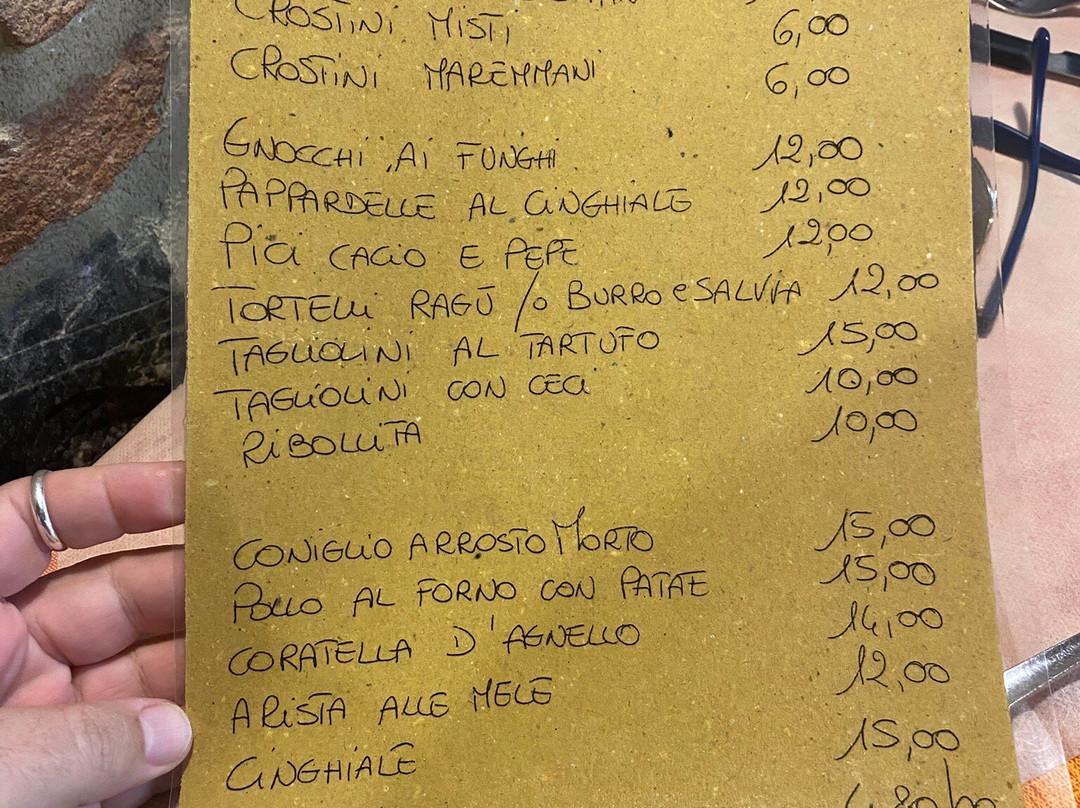 CROSTINI MISTI 6,00
CROSTINI MAREMMANI 6,00
GNOCCHI AI FUNGHI 12,00
PAPPARDELLE AL CINGHIALE 12,00
PICI CACIO E PEPE 12,00
TORTELLI RAGÙ /o BURRO e SALVIA 12,00
TAGLIOLINI AL TARTUFO 15,00
TAGLIOLINI CON CECI 10,00
RIBOLLITA 10,00
CONIGLIO ARROSTO MORTO 15,00
POLLO AL FORNO CON PATATE 15,00
CORATELLA D'AGNELLO 14,00
ARISTA ALLE MELE 12,00
CINGHIALE 15,00